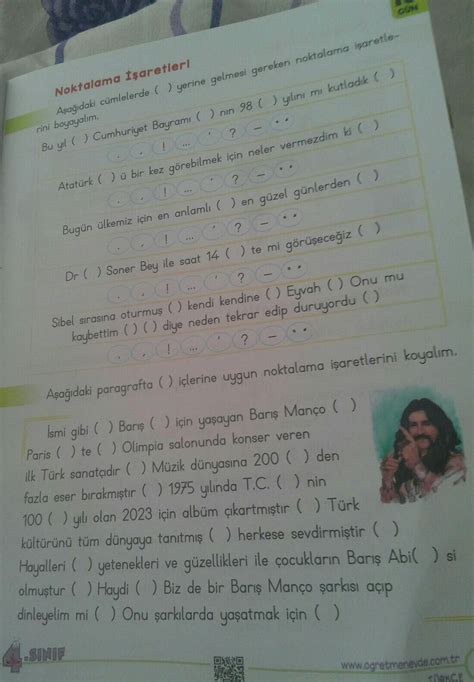 GÜN
Noktalama İşaretleri
Aşağıdaki cümlelerde ( ) yerine gelmesi gereken noktalama işaretle-
rini boyayalım.
Bu yıl ( ) Cumhuriyet Bayramı ( ) nın 98 ( ) yılını mı kutladık ( )
. , ! ... ' ? – ..
Atatürk ( ) ü bir kez görebilmek için neler vermezdim ki ( )
. , ! ... ' ? – ..
Bugün ülkemiz için en anlamlı ( ) en güzel günlerden ( )
. , ! ... ' ? – ..
Dr ( ) Soner Bey ile saat 14 ( ) te mi görüşeceğiz ( )
. , ! ... ' ? – ..
Sibel sırasına oturmuş ( ) kendi kendine ( ) Eyvah ( ) Onu mu
kaybettim ( ) ( ) diye neden tekrar edip duruyordu ( )
. , ! ... ' ? – ..
Aşağıdaki paragrafta ( ) içlerine uygun noktalama işaretlerini koyalım.
İsmi gibi ( ) Barış ( ) için yaşayan Barış Manço ( )
Paris ( ) te ( ) Olimpia salonunda konser veren
ilk Türk sanatçıdır ( ) Müzik dünyasına 200 ( ) den
fazla eser bırakmıştır ( ) 1975 yılında T.C. ( ) nin
100 ( ) yılı olan 2023 için albüm çıkartmıştır ( ) Türk
kültürünü tüm dünyaya tanıtmış ( ) herkese sevdirmiştir ( )
Hayalleri ( ) yetenekleri ve güzellikleri ile çocukların Barış Abi( ) si
olmuştur ( ) Haydi ( ) Biz de bir Barış Manço şarkısı açıp
dinleyelim mi ( ) Onu şarkılarda yaşatmak için ( )
4.SINIF
www.ogretmenevde.com.tr
TÜRKÇE